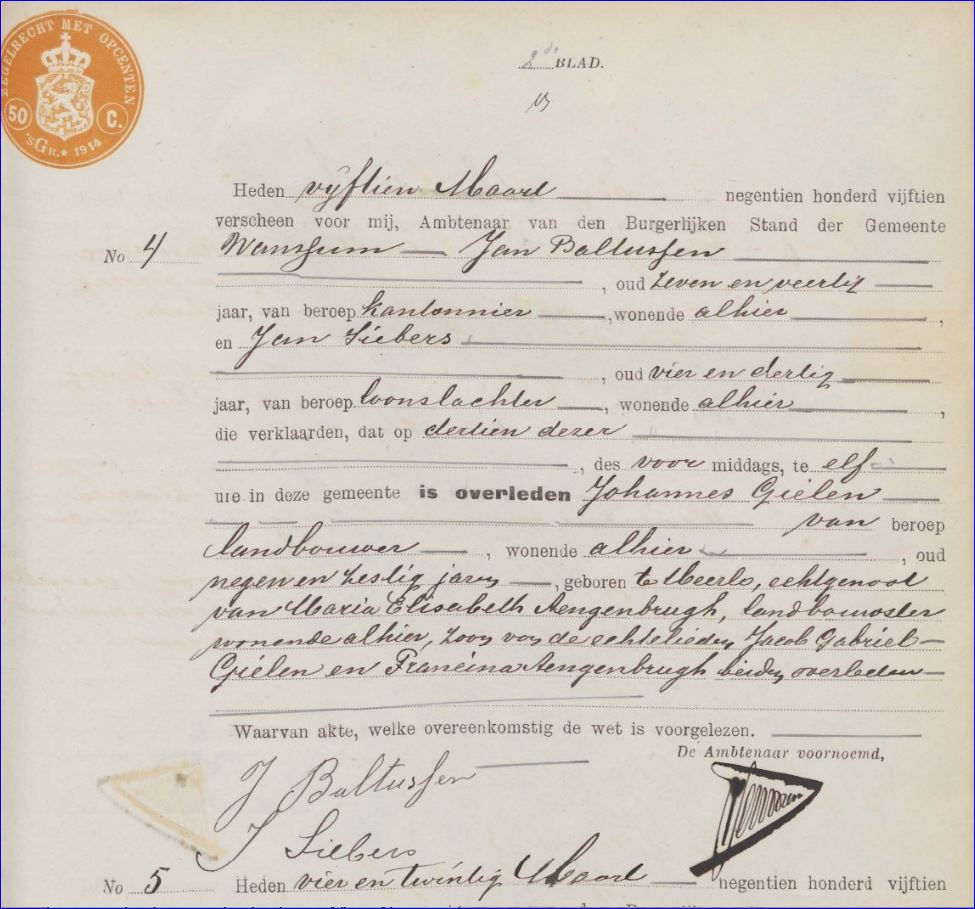 ZEGELRECHT MET OPCENTEN
50 C.
'sGR.* 1914
2de BLAD.
Heden vijftien Maart negentien honderd vijftien
verscheen voor mij, Ambtenaar van den Burgerlijken Stand der Gemeente
No 4 Wanssum Jan Baltussen
, oud zeven en veertig
jaar, van beroep kantonnier, wonende alhier,
en Jan Siebers
, oud vier en dertig
jaar, van beroep loonslachter, wonende alhier,
die verklaarden, dat op dertien dezer
, des voor middags, te elf
ure in deze gemeente is overleden Johannes Gielen
van beroep
landbouwer, wonende alhier, oud
negen en zestig jaren, geboren te Meerlo, echtgenoot
van Maria Elisabeth Aengenbrugh, landbouwster
wonende alhier, zoon van de echtelieden Jacob Gabriel
Gielen en Francina Aengenbrugh beiden overleden
Waarvan akte, welke overeenkomstig de wet is voorgelezen.
De Ambtenaar voornoemd,
J Baltussen
J Siebers
No 5 Heden vier en twintig Maart negentien honderd vijftien